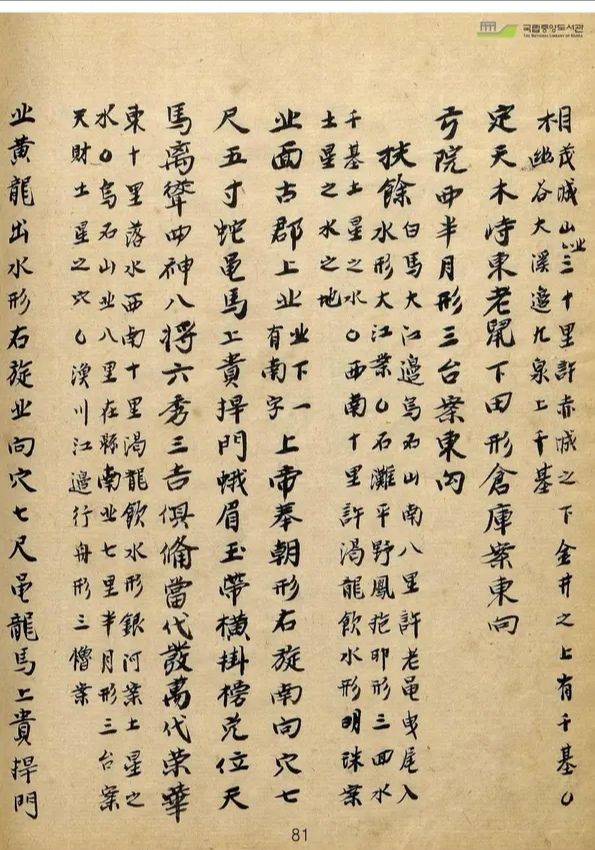 국립중앙도서관
THE NATIONAL LIBRARY OF KOREA
相茂城山业三十里許赤城之下金井之上有千基〇
木幽谷大溪邉九泉上千基
定天木峙東老鼠下田形倉庫案東向
亐院西半月形三台案東向
扶餘白馬大江邉烏石山南八里許老黽曳尾入
水形大江案〇石灘平野鳳抱卵形三面水
千基土星之水〇西南十里許渴龍飮水形明珠案
土星之水之地
业面古郡上业业下一有南字上帝奉朝形右旋南向穴七
尺五寸蛇黽馬上貴捍門蛾眉玉帶橫掛榜兌位天
馬离聳四神八將六秀三吉俱備當代發萬代荣華
東十里落水西南十里渴龍飮水形銀河案土星之
水〇烏石山业八里在縣南业七里半月形三台案
天財土星之穴〇漁川江邉行舟形三案
业黃龍出水形右旋业向穴七尺黽龍馬上貴捍門
81